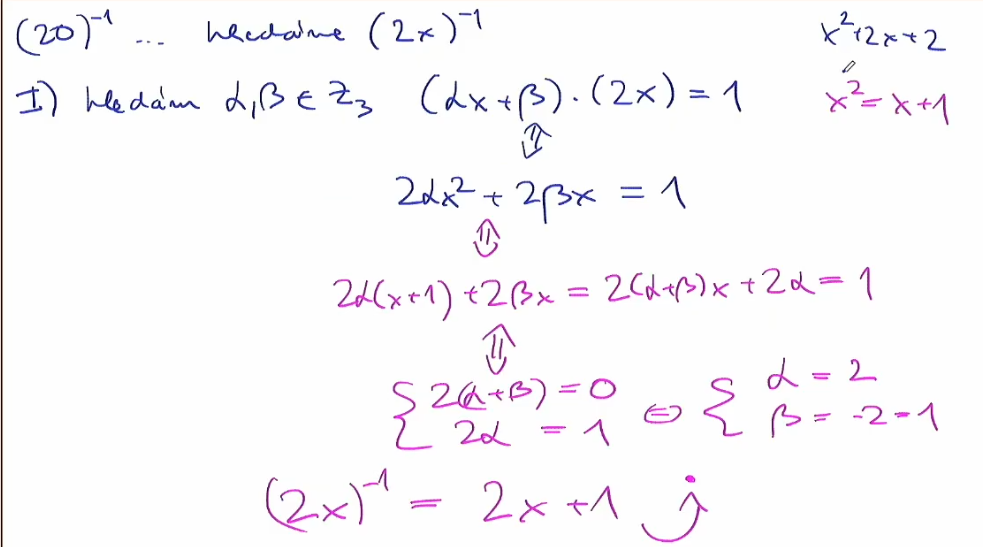 (20)⁻¹ ... hledáme (2x)⁻¹ x²+2x+2
I) hledám α,β ∈ Z₃ (αx+β)·(2x) = 1 x² = x+1
⇕
2αx² + 2βx = 1
⇕
2α(x+1) + 2βx = 2(α+β)x + 2α = 1
⇕
{ 2(α+β) = 0 ⇔ { α = 2
2α = 1 β = -2 = 1
(2x)⁻¹ = 2x + 1